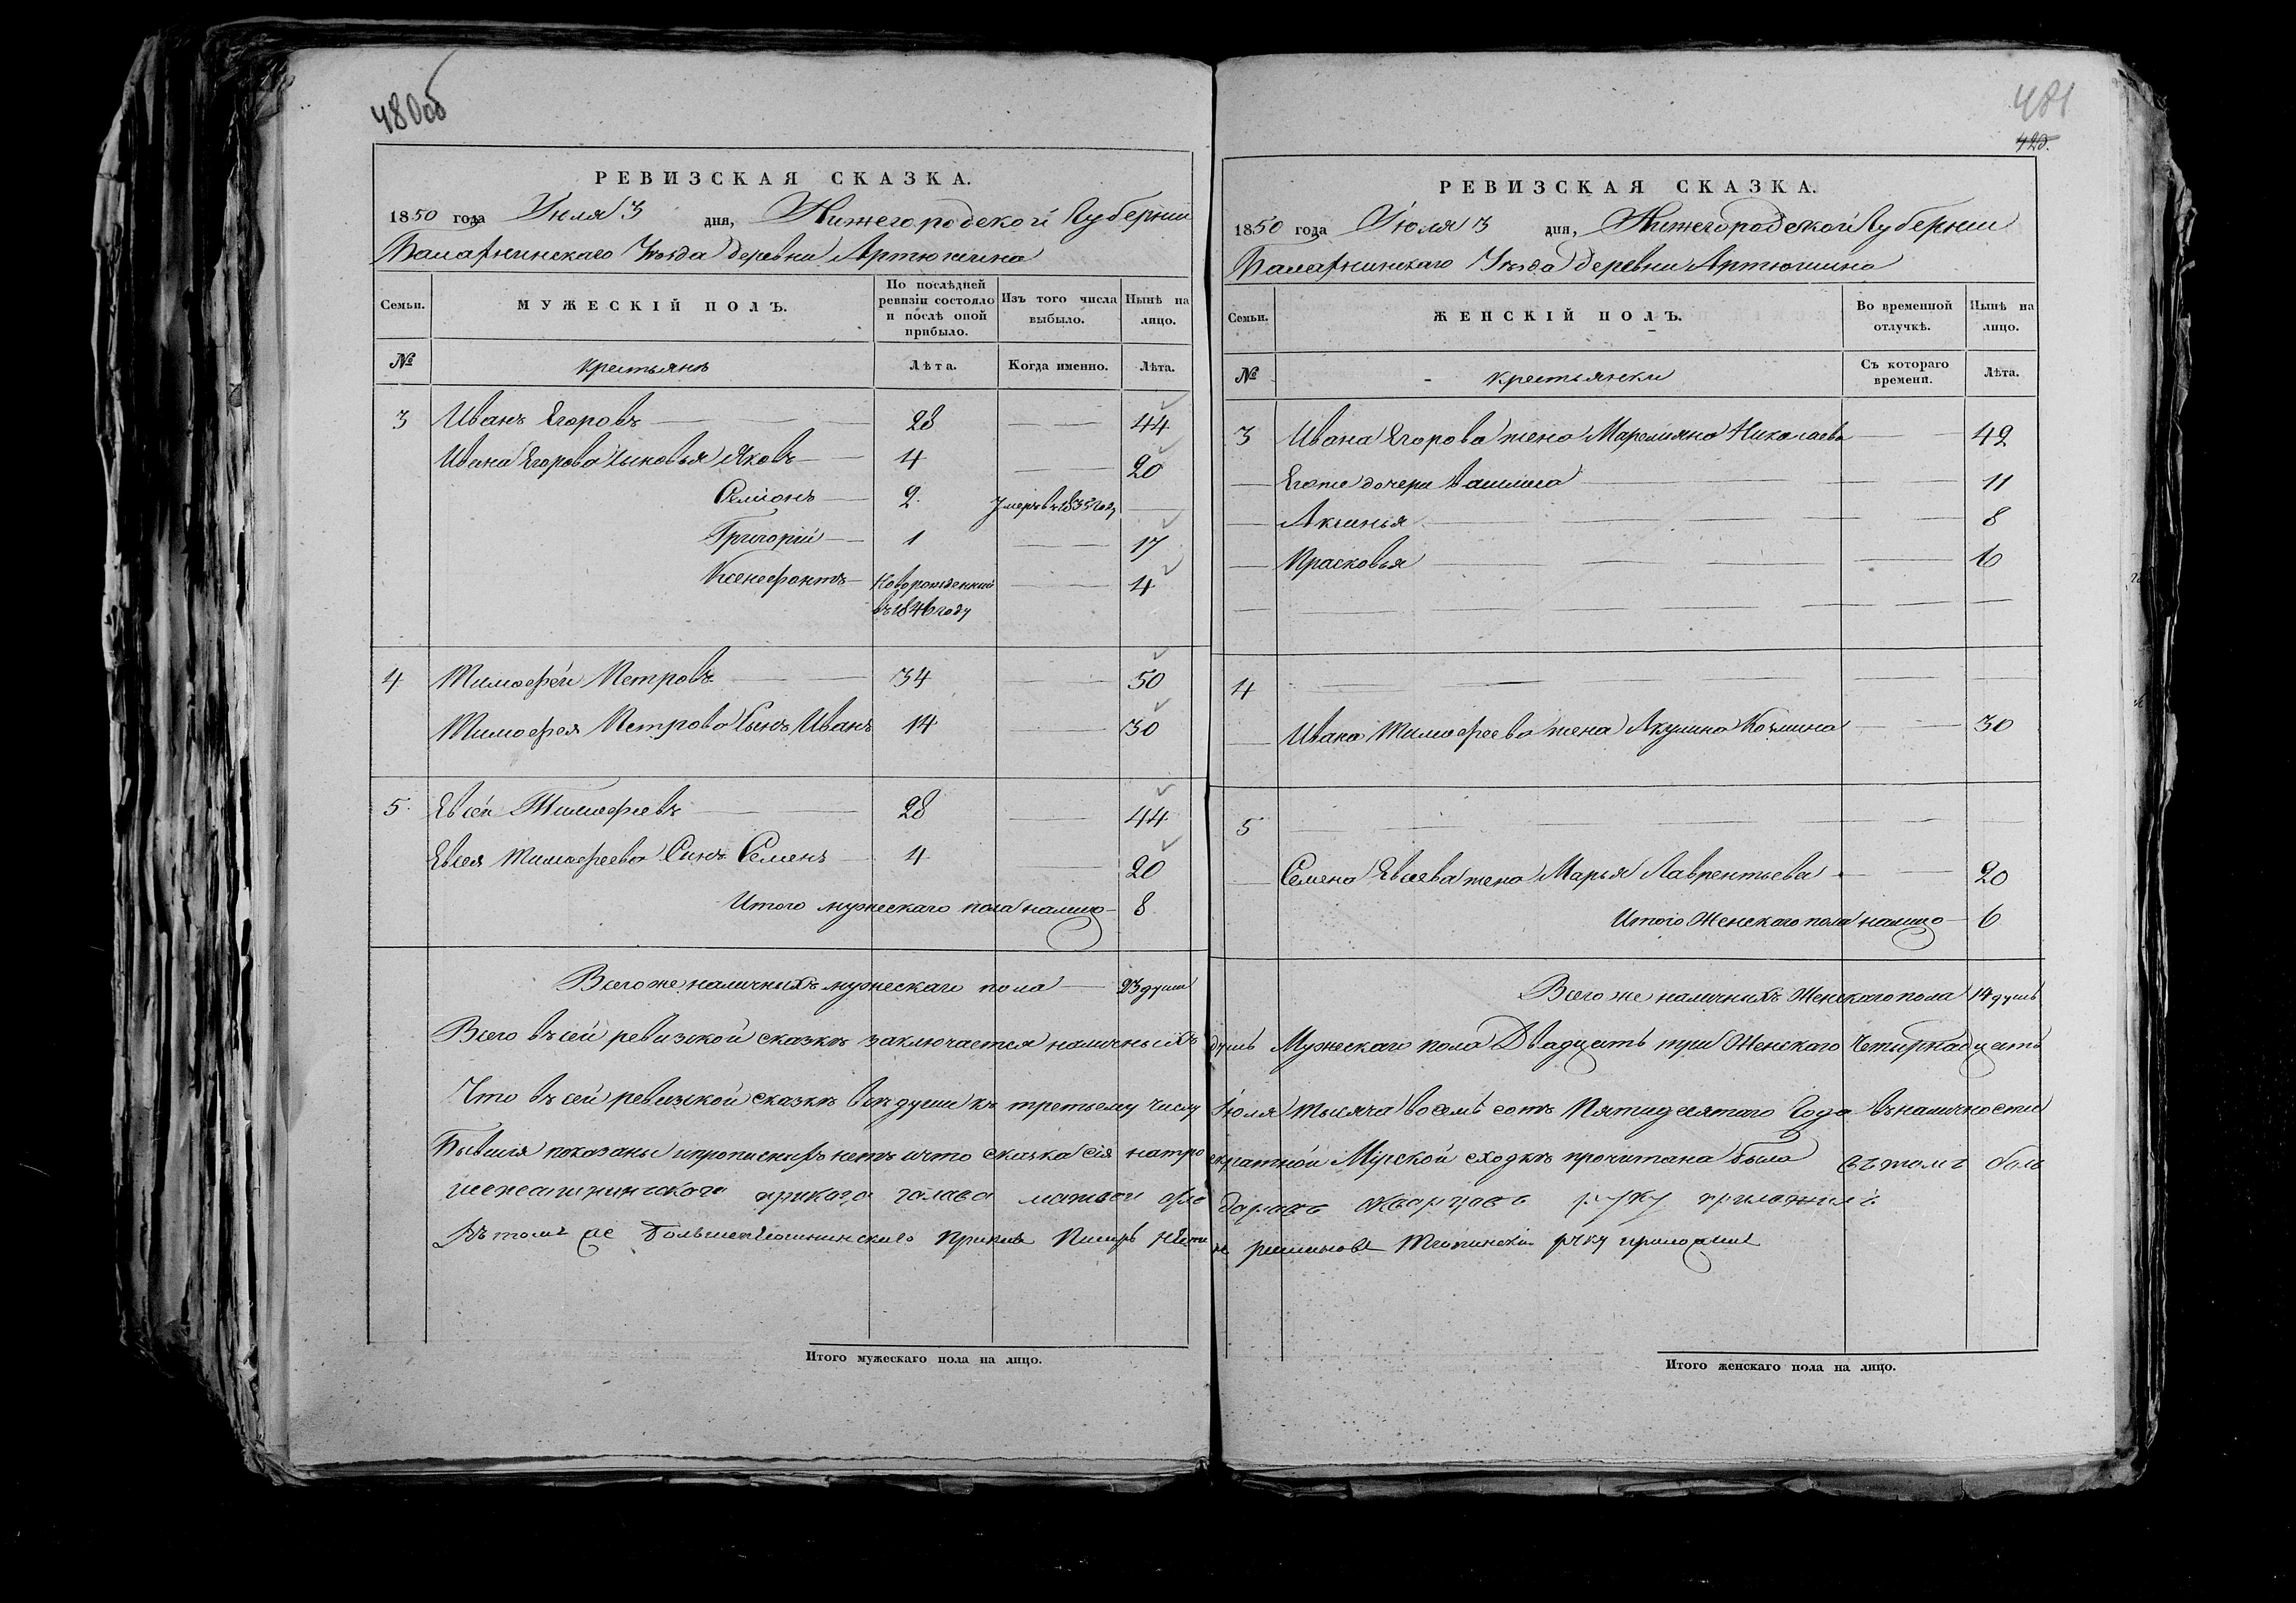 480об
РЕВИЗСКАЯ СКАЗКА.
1850 года Июля 3 дня, Нижегородской Губернии
Балахнинскаго Уѣзда деревни Артюшина
Семьи. МУЖЕСКІЙ ПОЛЪ. По послѣдней ревизіи состояло и послѣ оной прибыло. Изъ того числа выбыло. Нынѣ на лицо.
№ Крестьянъ Лѣта. Когда именно. Лѣта.
3 Иванъ Егоровъ 28 44
Ивана Егорова сыновья Яковъ 4 20
Семіонъ 2 Умеръ въ 1835 году
Григорій 1 17
Ксенефонтъ Новорожденный 4
въ 1846 году
4 Тимофей Петровъ 34 50
Тимофея Петрова Сынъ Иванъ 14 30
5 Евсей Тимофеевъ 28 44
Евсея Тимофеева Сынъ Семенъ 4 20
Итого мужескаго пола налицо 8
Всего же наличныхъ мужескаго пола 23 души
Всего въ сей ревизской сказкѣ заключается наличныхъ
Что въ сей ревизской сказкѣ всѣ души къ третьему числу
Бывшія показаны и прописныхъ нетъ и что сказка сія натро
приказа голава
Въ томъ же
Итого мужескаго пола на лицо.
481
420.
РЕВИЗСКАЯ СКАЗКА.
1850 года Июля 3 дня, Нижегородской Губернии
Балахнинскаго Уѣзда деревни Артюшина
Семьи. ЖЕНСКІЙ ПОЛЪ. Во временной отлучкѣ. Нынѣ на лицо.
№ Крестьянки Съ котораго времени. Лѣта.
3 Ивана Егорова жена Маремьяна Николаева 42
Егоже дочери Василиса 11
Аксинья 8
Прасковья 6
4
Ивана Тимофеева жена Акулина Козмина 30
5
Семена Евсева жена Марья Лаврентьева 20
Итого Женскаго пола налицо 6
Всего же наличныхъ Женскаго пола 14 душъ
душъ Мужескаго пола Двадцать три Женскаго Четырнадцать
Іюля тысяча восемь сотъ Пятидесятаго Года въ наличности
екратной Мірской сходкѣ прочитана была въ томъ боль
руку приложилъ
руку приложилъ
Итого женскаго пола на лицо.